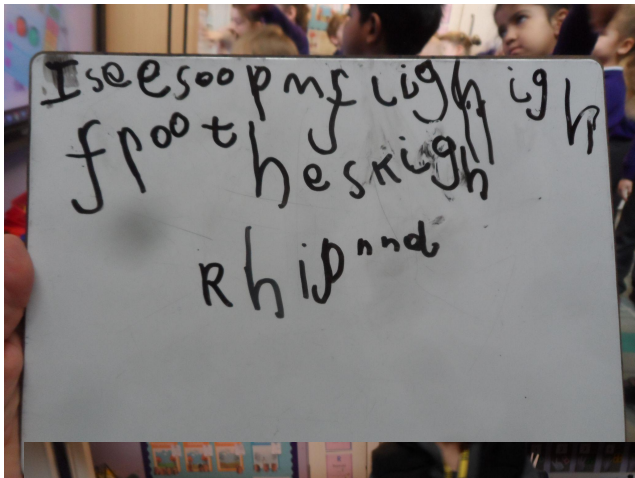 I seesoopmf iigh igh
fpoot heskigh
Rhipnnd